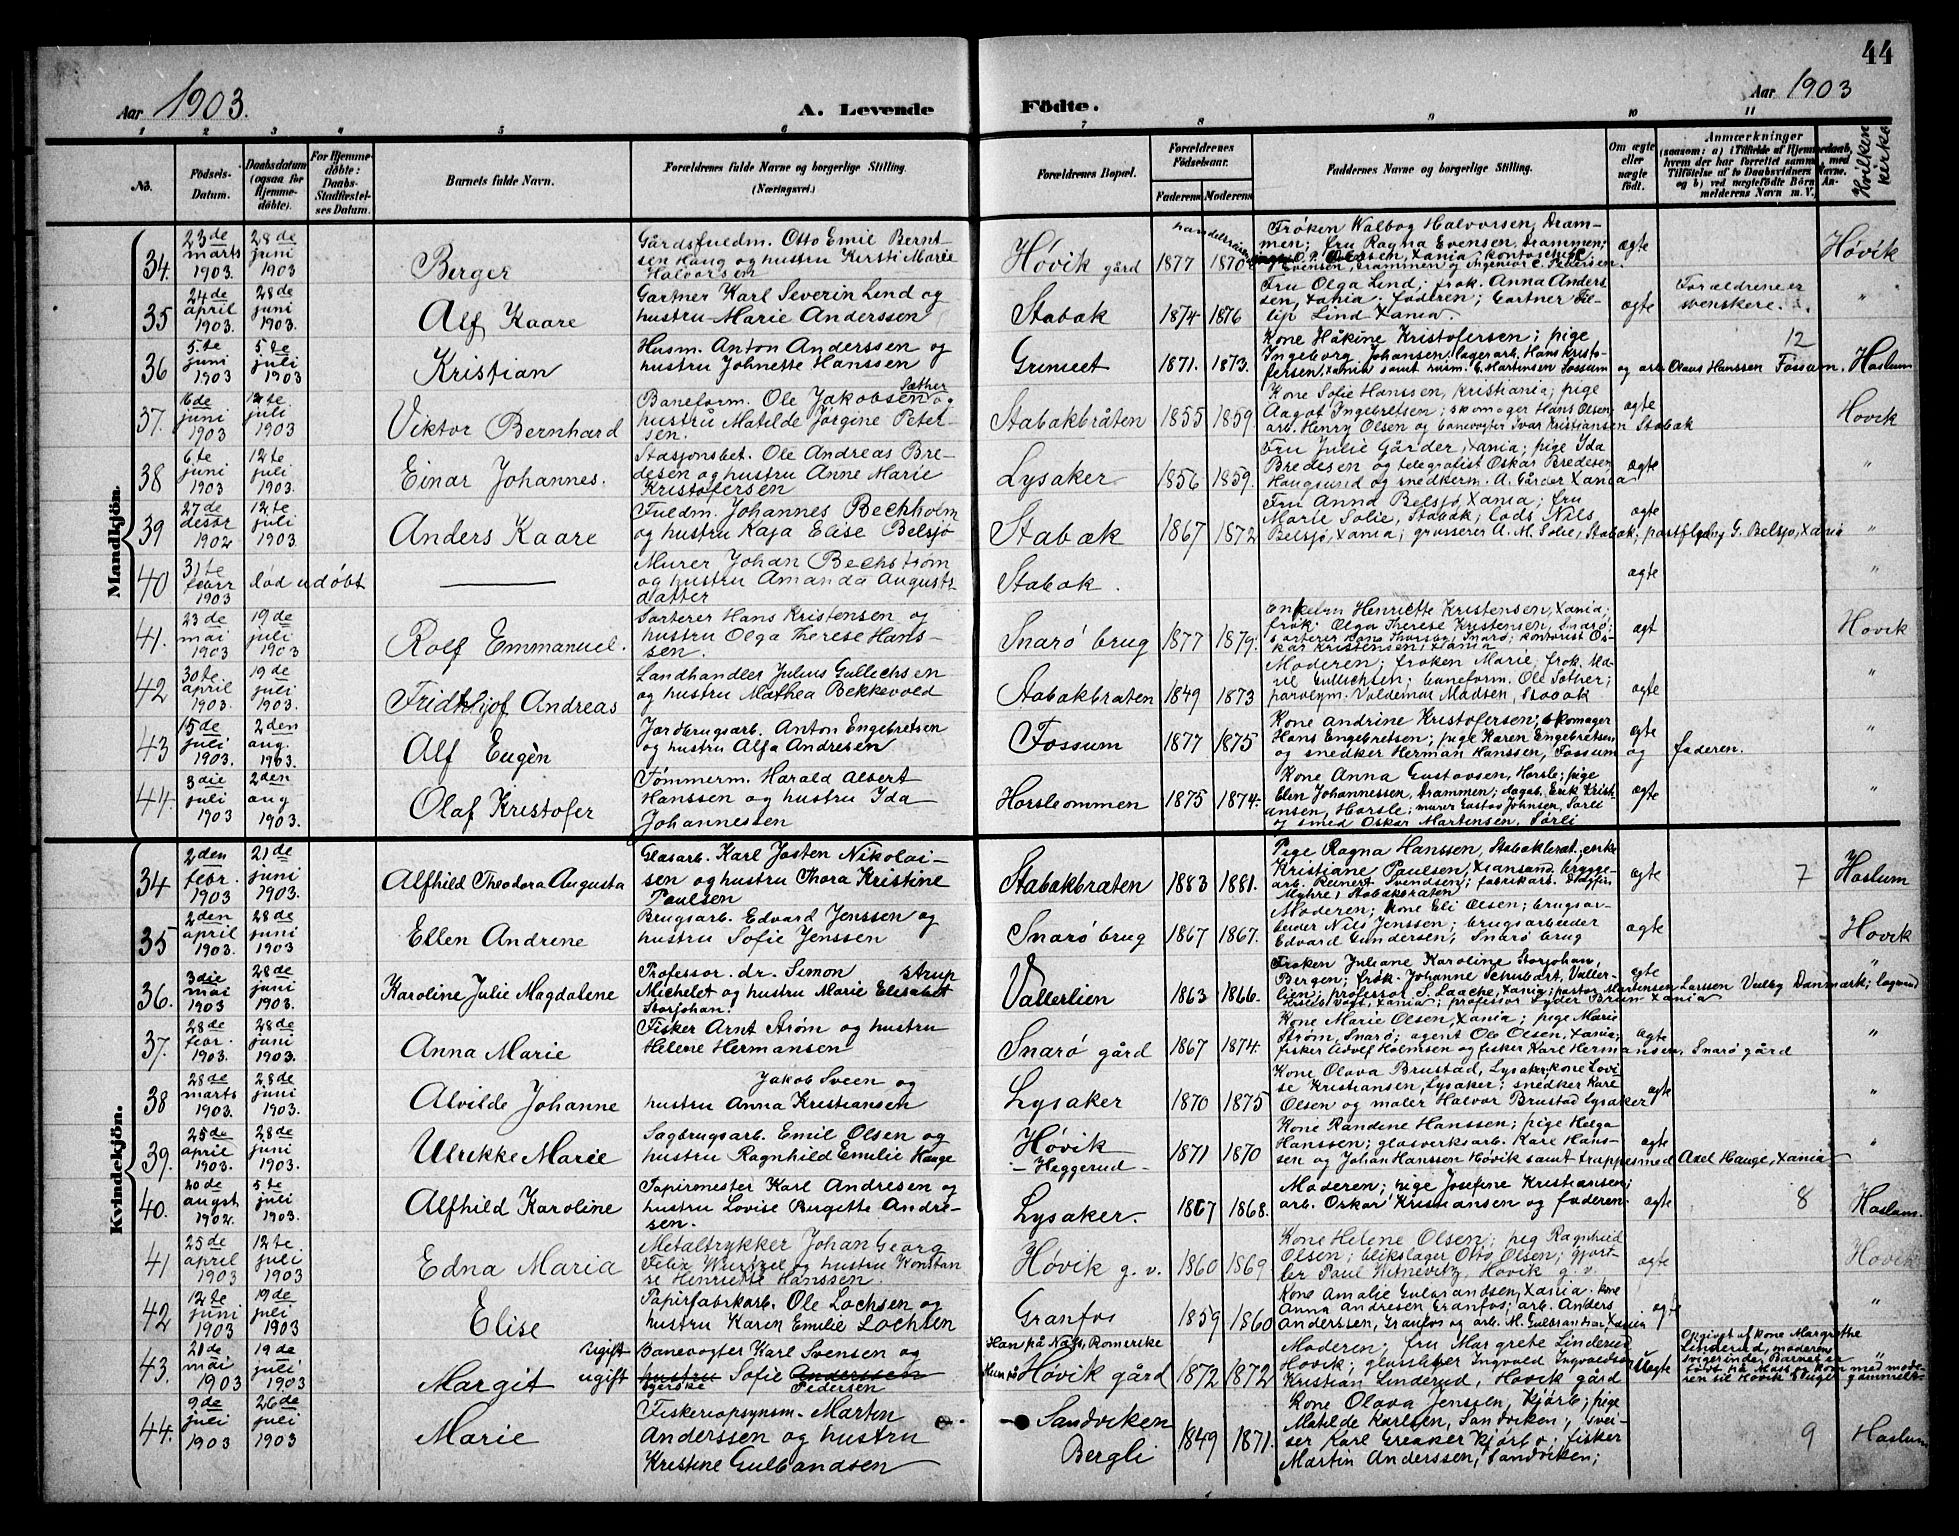 44
Aar 1903.
A. Levende
Födte.
Aar 1903
1 2 3 4 5 6 7 8 9 10 11
No.
Födsels-Datum.
Daabsdatum (ogsaa for Hjemmedöbte).
For Hjemmedöbte: Daabs-Stadfæstelses Datum.
Barnets fulde Navn.
Forældrenes fulde Navne og borgerlige Stilling.
(Næringsvei.)
Forældrenes Bopæl.
Forældrenes Födselsaar.
Faderens Moderens
Faddernes Navne og borgerlige Stilling.
Om ægte eller uægte födt.
Anmærkninger
(saasom: a) i Tilfælde af Hjemmedaab,
hvem der har forrettet samme, med
Tilföielse af to Daabsvidners Navne.
og b) ved uægtefödte Börn An-
melderens Navn m. V.
Hvilken kirke
Mandkjön.
34. 23de marts 1903. 28de juni 1903 Berger
Gårdsfuldm. Otto Emil Bernt-
sen Haug og hustru Kirsti Marie
Halvorsen
Høvik gård 1877 1870
Frøken Walbog Halvorsen, Dram-
men; fru Ragna Evensen, Drammen;
Evensen, Drammen og Ingeniør C. Pedersen.
ægte Høvik
35 24de april 1903. 28de juni 1903. Alf Kaare
Gartner Karl Severin Lind og
hustru Marie Anderssen
Stabæk 1874 1876
Fru Olga Lind; frøk. Anna Anders-
sen, Xania. faderen; Gartner Fi-
lip Lind Xania.
ægte Forældrene er
svenskere. "
36 5.te juni 1903 5te juli 1903 Kristian
Husm. Anton Anderssen og
hustru Johnette Hanssen
Grinieet 1871. 1873.
Kone Håkine Kristofersen; pige
Ingeborg Johansen; lagerarb. Hans Kristo-
fersen, Xania samt husm. E. Martinsen Fossum og arb. Olaus Hanssen Fossum.
12 Haslum
37. 16de juni 1903 12te juli 1903 Viktor Bernhard
Baneform. Ole Jakobsen Sæther og
hustru Matilde Jørgine Peter-
sen.
Stabækbråten 1855 1859.
Kone Sofie Hanssen, Kristiania; pige
Aagot Ingebretsen; skomager Hans Olsen;
arb. Henry Olsen og banevogter Ivar Kristiansen Stabæk
ægte Høvik
38 6.te juni 1903 12te juli 1903. Einar Johannes.
Stasjonsbet. Ole Andreas Bre-
desen og hustru Anne Marie
Kristofersen
Lysaker 1856 1859.
Fru Julie Gårder, Xania; pige Ida
Bredesen og telegrafist Oskar Bredesen,
Haugsund og snedkerm. A. Gårder Xania
ægte "
39 27de desbr 1902 12te juli 1903. Anders Kaare
Fuldm. Johannes Bechholm
og hustru Kaja Elise Belsjø
Stabæk 1867 1872
Fru Anna Belsjø, Xania; fru
Marie Solie, Stabæk; lods Nils
Belsjø, Xania; grosserer A. M. Solie, Stabæk; postfuldm. G. Belsjø, Xania
ægte "
40 31te 1903 død udøbt ———
Murer Johan Bechstrøm
og hustru Amanda Augusts-
datter
Stabæk. ægte "
41. 23de mai 1903 19de juli 1903 Rolf Emmanuel.
Sorterer Hans Kristensen og
hustru Olga Therese Hans-
sen.
Snarø brug 1877 1879.
Enkefru Henriette Kristensen, Xania;
frøk. Olga Therese Kristensen, Snarø;
sorterer Hans Thorsby, Snarø; kontorist Os-
kar Kristensen, Xania
ægt Høvik
42 30te april 1903. 19de juli 1903 Fridthjof Andreas
Landhandler Julius Gullichsen
og hustru Mathea Bekkevold
Stabækbråten 1849 1873
Moderen; frøken Marie, frøk. Ma-
rie Gullichsen; baneform. Ole Sæther;
parvelym. Valdemar Madsen, Stabæk
ægte "
43 15de juli 1903. 2den aug. 1903. Alf Eugèn
Jordbrugsarb. Anton Engebretsen
og hustru Alfa Andresen
Fossum 1877 1875
Kone Andrine Kristofersen; skomager
Hans Engebretsen; pige Karen Engebretsen
og snedker Herman Hanssen, Fossum og faderen.
ægte "
44. 3die juli 1903 2den aug 1903. Olaf Kristofer
Tømmerm. Harald Albert
Hanssen og hustru Ida
Johannessen
Horsleommen 1875 1874.
Kone Anna Gustavsen, Horsle; pige
Elen Johannessen, Drammen; dagab. Erik Krist-
ansen, Horsle; murer Gustav Johnsen, Sørli
og smed Oskar Martensen, Sørli
ægte "
Kvindekjön.
34 2den febr. 1903 21de juni 1903. Alfhild Theodora Augusta
Glasarb. Karl Josten Nikolai-
sen og hustru Thora Kristine
Paulsen
Stabækbråten 1883 1881.
Pige Ragna Hanssen, Stabækbråt.; enke
Kristiane Paulsen, Xiansand; brygge-
arb. Reinert Svendsen; fabrikarb. Dagfin
Myhre, Stabækbråten
ægte 7 Haslum
35 2den april 1903 28de juni 1903 Ellen Andrine
Brugsarb. Edvard Jenssen og
hustru Sofie Jenssen
Snarø brug 1867 1867.
Moderen; kone Eli Olsen; brugsar-
beider Nils Jenssen; brugsarbeider
Edvard Gundersen, Snarø brug
ægte Høvik
36. 3die mai 1903 28de juni 1903. Karoline Julie Magdalene
Professor. dr. Simon Strup
Michelet og hustru Marie Elisabet
Storjohan.
Vallerlien 1863 1866.
Frøken Juliane Karoline Storjohan,
Bergen; frøk. Johanne Schubart, Valler-
lien; professor S. Laache, Xania; pastor Martensen Larssen Veiby Danmark; lagmand
Kristof Vogt, Xania; professor Lyder Brun Xania
ægte "
37. 28de febr. 1903. 28de juni 1903. Anna Marie
Fisker Arnt Strøm og hustru
Helene Hermansen
Snarø gård 1867 1874.
Kone Marie Olsen, Xania; pige Marie
Strøm, Snarø; agent Ole Olsen, Xania;
fisker Adolf Holmsen og fisker Karl Hermansen, Snarø gård
ægte "
38 28de marts 1903. 28de juni 1903. Alvilde Johanne
Jakob Sveen og
hustru Anna Kristiansen
Lysaker 1870 1875
Kone Olava Brustad, Lysaker; kone Lovi-
se Kristiansen, Lysaker; snedker Karl
Olsen og maler Halvor Brustad Lysaker
ægte "
39. 25de april 1903. 28de juni 1903. Ulrikke Marie
Sagbrugsarb. Emil Olsen og
hustru Ragnhild Emilie Hauge
Høvik
- Heggerud - 1871 1870
Kone Randine Hanssen; pige Helga
Hanssen; glasverksarb. Kare Hans-
sen og Johan Hanssen Høvik samt trappesmed Axel Hauge, Xania
ægte "
40. 20de augst 1902. 5te juli 1903. Alfhild Karoline
Papirmester Karl Andresen og
hustru Lovise Birgitte Andre-
sen.
Lysaker. 1867 1868.
Moderen; pige Josefine Kristiansen;
arb. Oskar Kristiansen og faderen.
ægte 8 Haslum.
41 25de april 1903 12te juli 1903 Edna Maria
Metaltrykker Johan Georg
Felix Wurtzel og hustru Konstan-
se Henriette Hanssen.
Høvik g. v. 1860 1869
Kone Helene Olsen; pig Ragnhild
Olsen; blikslager Otto Olsen; gjort-
ler Paul Witnevitz, Høvik g. v.
ægte Høvik
42 12te juni 1903 19de juli 1903 Elise
Papirfabrkarb. Ole Lochsen og
hustru Karen Emilie Lochsen
Granfos 1859 1860
Kone Amalie Gulbrandsen, Xania. kone
Anna Andresen Granfos; arb. Anders
Anderssen, Granfos og arb. M. Gulbrandsen, Xania
ægte "
43. 20de mai 1903 19de juli 1903 Margit
Ugift Banevogter Karl Svensen og
ugift hustru Sofie Anderssen
Pedersen
Han på Næs, Romerike
Hun på Høvik gård 1872 1872
Moderen; fru Margrete Linderud
Høvik; glassliber Ingvald Ingvaldsen
Kristian Linderud, Høvik gård
Uægte Opgivet af kone Margrethe
Linderud, moderens
svigerinde. Barnet er
født på Moss og kom med mode-
ren til Høvik
"
44. 9de juli 1903 26de juli 1903 Marie
Fiskeriopsynsm. Martin
Anderssen og hustru
Kristine Gulbandsen
Sandviken
Bergli 1849 1871.
Kone Olava Jenssen, Kjørb; pige
Matilde Karlsen, Sandviken; svei-
ser Karl Greaker Kjørbo; fisker
Martin Anderssen, Sandviken;
9 Haslum